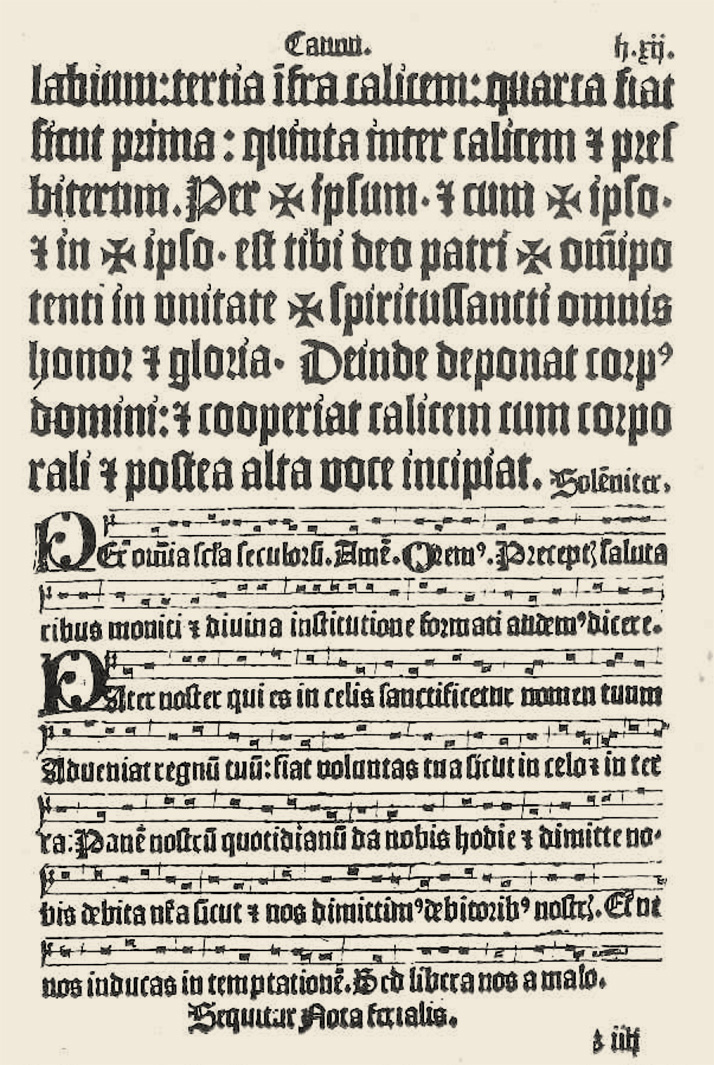 Canon.
h.xij.
labium: tertia ĩfra calicem: quarta fiat
sicut prima: quinta inter calicem ⁊ pres
biterum. Per ✠ ipsum· ⁊ cum ✠ ipso·
⁊ in ✠ ipso· est tibi deo patri ✠ om̃ipo
tenti in vnitate ✠ spiritussancti omnis
honor ⁊ gloria· Deinde deponat corpꝰ
domini: ⁊ cooperiat calicem cum corpo
rali ⁊ postea alta voce incipiat. Solẽniter.
PEr om̃ia sc̃ła seculorũ. Amẽ. Oremꝰ. Preceptꝭ saluta
ribus moniti ⁊ diuina institutione formati audemꝰ dicere.
PAter noster qui es in celis sanctificetur nomen tuum
Adueniat regnũ tuũ: fiat voluntas tua sicut in celo ⁊ in ter
ra: Panẽ nostrũ quotidianũ da nobis hodie ⁊ dimitte no-
bis debita nr̃a sicut ⁊ nos dimittimꝰ debitoribꝰ nostrꝭ. Et ne
nos inducas in temptationẽ. Sed libera nos a malo.
Sequitur Nota ferialis.